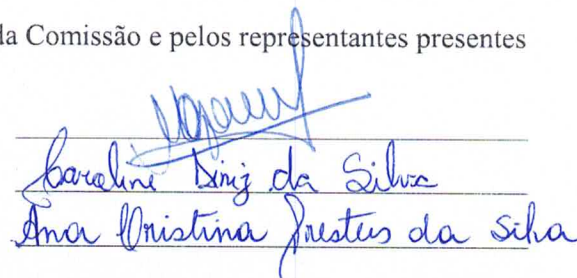 da Comissão e pelos representantes presentes
Caroline Diniz da Silva
Ana Cristina Prestes da Silva